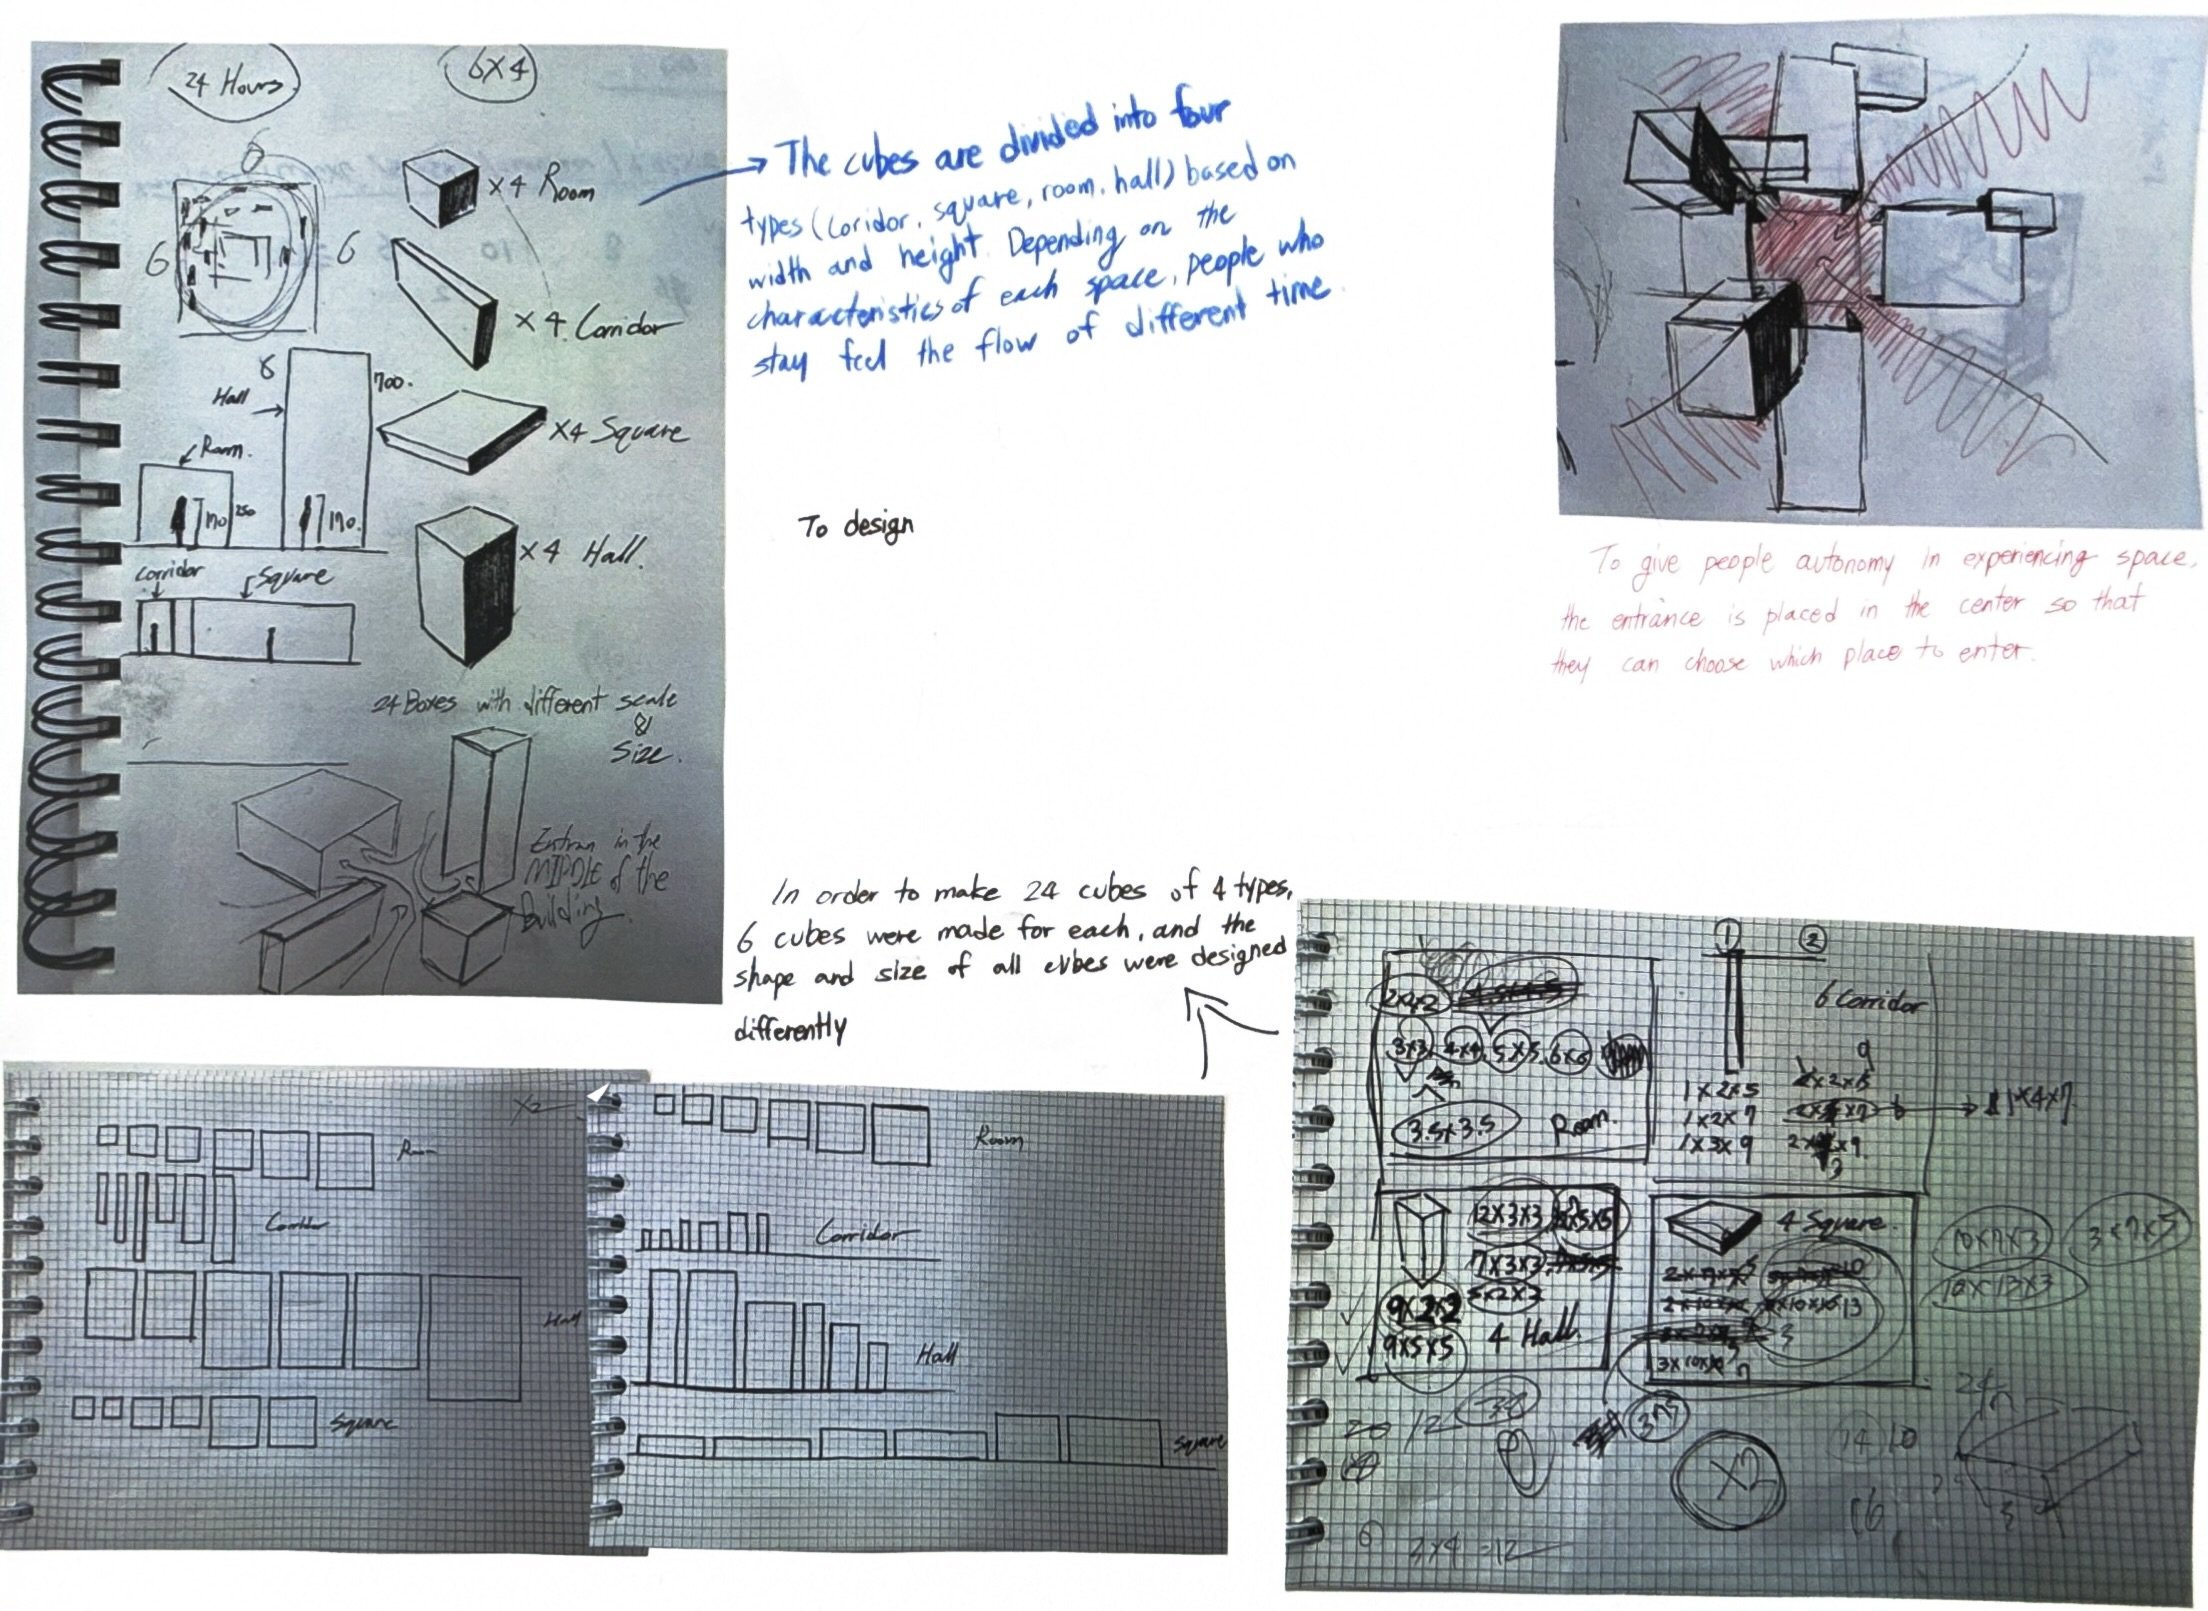 24 Hours
6x4
6
6
6
x4 Room
x4 Corridor
x4 Square
x4 Hall.
8
700.
Hall
Room.
170
250
170.
Corridor
Square
24 Boxes with different scale
&
Size.
Entran in the
MIDDLE of the
Building.
→ The cubes are divided into four
types (coridor, square, room, hall) based on
width and height. Depending on the
characteristics of each space, people who
stay feel the flow of different time.
To design
To give people autonomy in experiencing space,
the entrance is placed in the center so that
they can choose which place to enter.
In order to make 24 cubes of 4 types,
6 cubes were made for each, and the
shape and size of all cubes were designed
differently
x2
Room
Corridor
Hall
Square
Room
Corridor
Hall
Square
2x2x2
3x3 4x4 5x5 6x6
3.5x3.5 Room.
① ②
6 Corridor
1x2x5
1x2x7
1x3x9
→ 1x4x7
12x3x3
7x3x3
5x2x2
9x2x2
9x5x5
4 Hall.
4 Square.
10x7x3
3x7x5
10x13x3
20 12
x2
14 10
16
3x4 =12